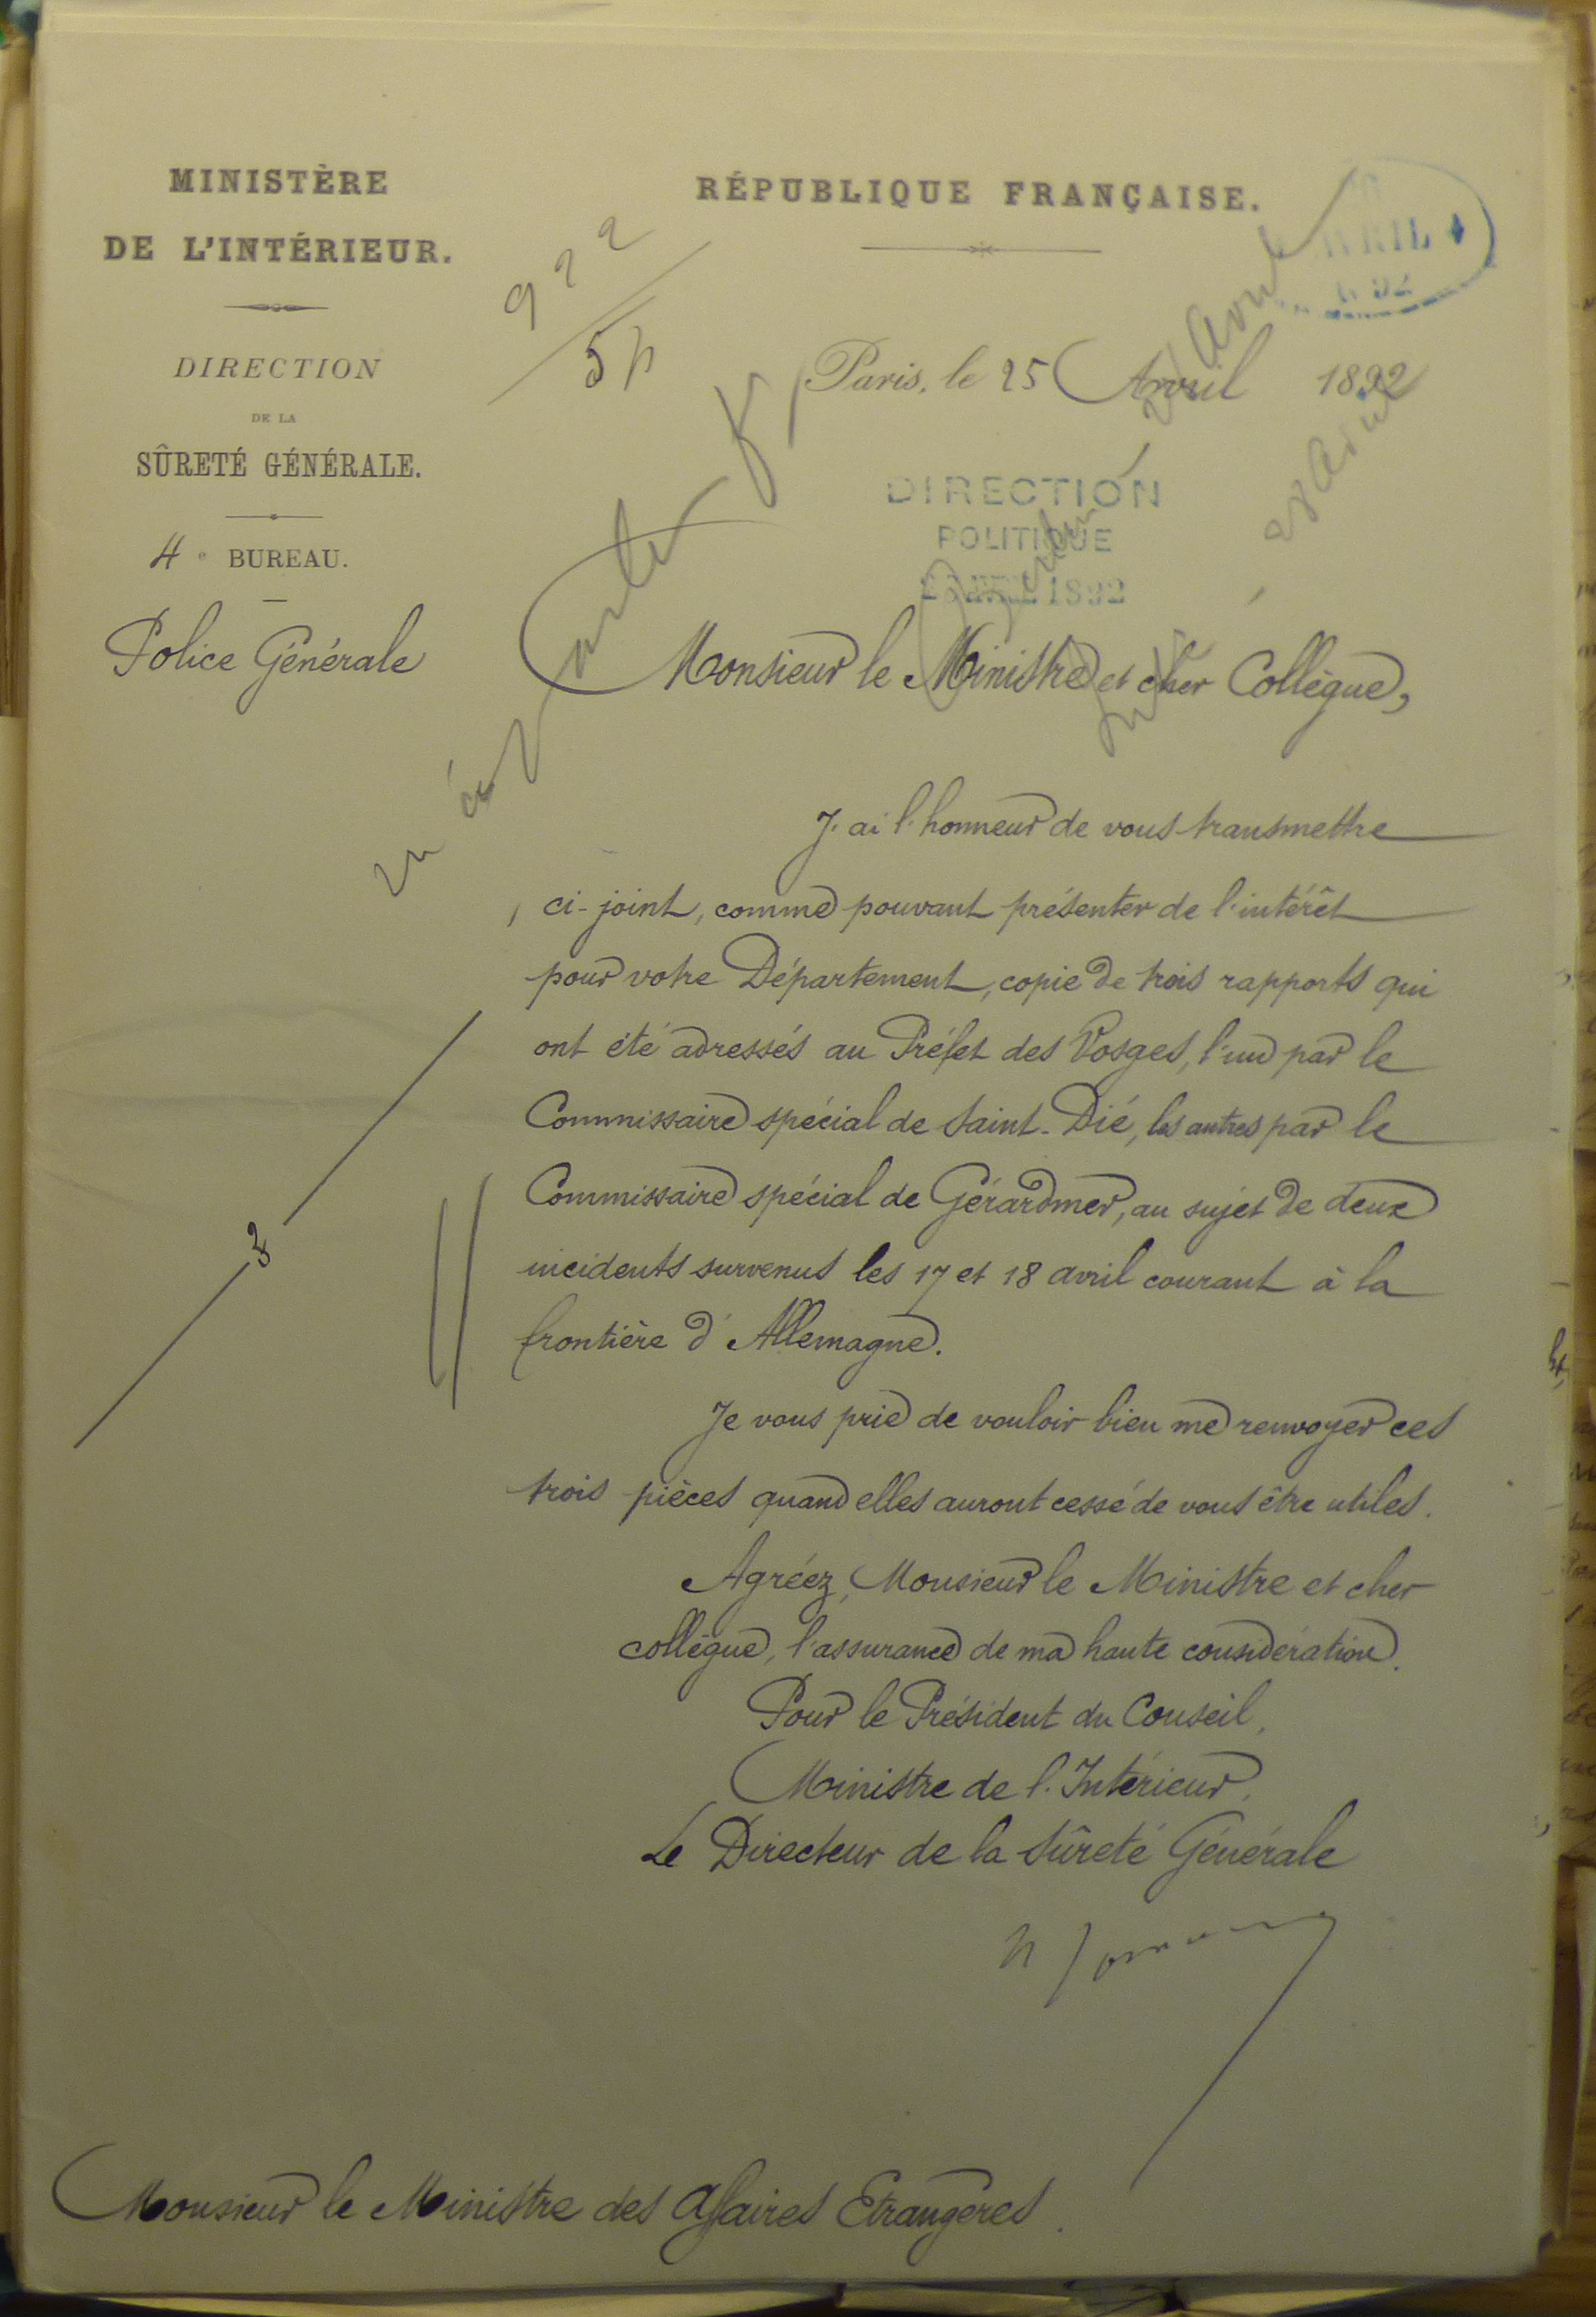 MINISTÈRE
DE L'INTÉRIEUR.
DIRECTION
DE LA
SÛRETÉ GÉNÉRALE.
4e BUREAU.
Police Générale
RÉPUBLIQUE FRANÇAISE.
AVRIL
Paris, le 25 Avril 1892
DIRECTION
POLITIQUE
1892
Monsieur le Ministre et cher Collègue,
J'ai l'honneur de vous transmettre
ci-joint, comme pouvant présenter de l'intérêt
pour votre Département, copie de trois rapports qui
ont été adressés au Préfet des Vosges, l'un par le
Commissaire spécial de Saint-Dié, les autres par le
Commissaire spécial de Gérardmer, au sujet de deux
incidents survenus les 17 et 18 avril courant à la
frontière d'Allemagne.
3
Je vous prie de vouloir bien me renvoyer ces
trois pièces quand elles auront cessé de vous être utiles.
Agréez, Monsieur le Ministre et cher
collègue, l'assurance de ma haute considération.
Pour le Président du Conseil,
Ministre de l'Intérieur.
Le Directeur de la Sûreté Générale
Monsieur le Ministre des Affaires Etrangères.